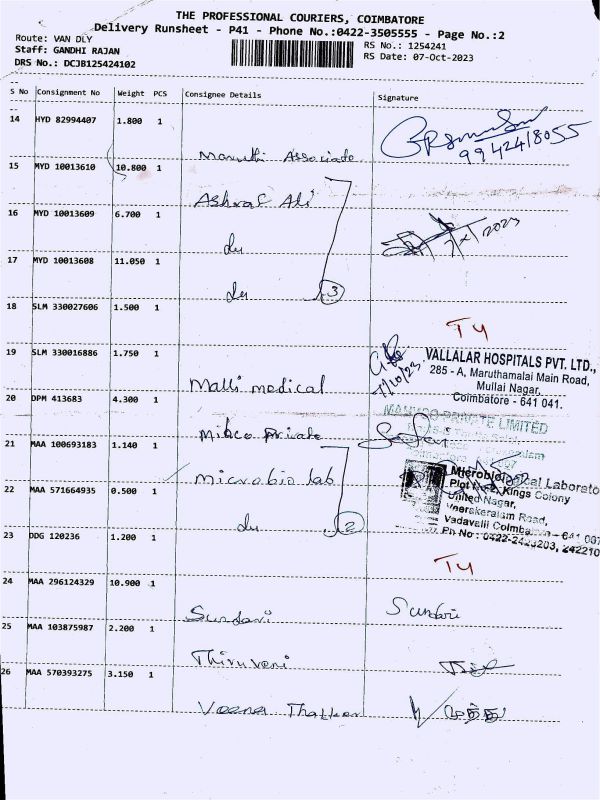 THE PROFESSIONAL COURIERS, COIMBATORE
Delivery Runsheet - P41 - Phone No.:0422-3505555 - Page No.:2
Route: VAN DLY
Staff: GANDHI RAJAN
DRS No.: DCJB125424102
RS No.: 1254241
RS Date: 07-Oct-2023
S No Consignment No Weight PCS Consignee Details Signature
14 HYD 82994407 1.800 1
Maruthi Associate
9942418055
15 MYD 10013610 10.800 1
Ashraf Ali
16 MYD 10013609 6.700 1
du
7/X/2023
17 MYD 10013608 11.050 1
du 3
18 SLM 330027606 1.500 1
T4
19 SLM 330016886 1.750 1
Malli medical
7/10/23
VALLALAR HOSPITALS PVT. LTD.,
285 - A, Maruthamalai Main Road,
Mullai Nagar,
Coimbatore - 641 041.
20 DPM 413683 4.300 1
Private
PRIVATE LIMITED
21 MAA 100693183 1.140 1
Microbio lab
Microbiological Laborato
Kings Colony
United Nagar,
Veerakeralam Road,
Vadavalli Coimba
641 007
Ph No : 0422-
22 MAA 571664935 0.500 1
du 2
23 DDG 120236 1.200 1
T4
24 MAA 296124329 10.900 1
Sundari
Sundari
25 MAA 103875987 2.200 1
Thiruveni
26 MAA 570393275 3.150 1
Veena Thakker